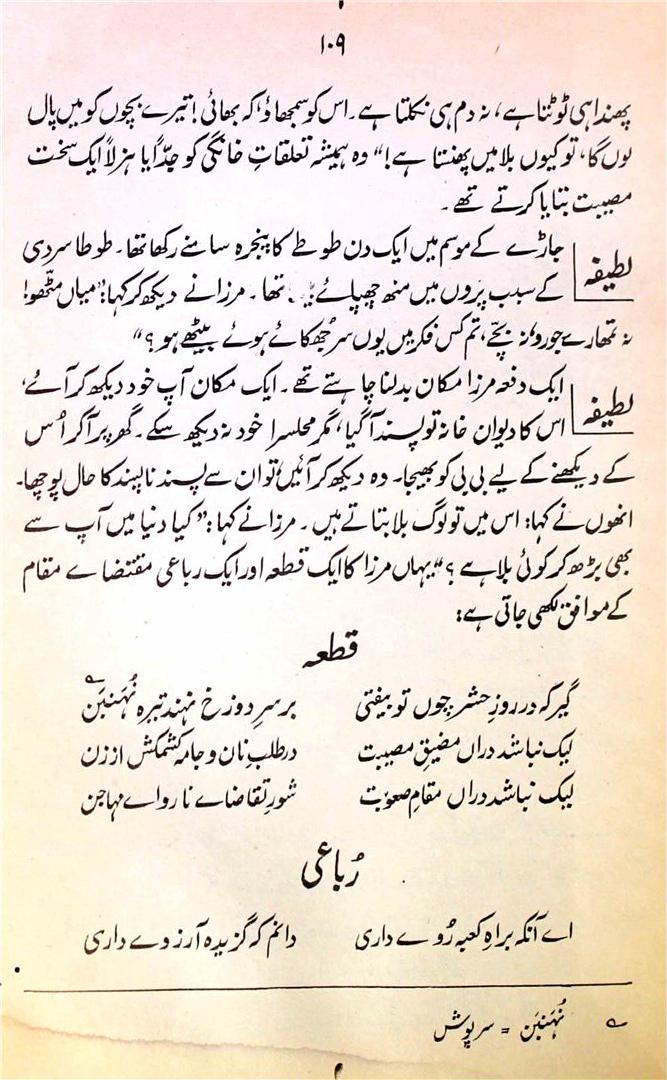 ۱۰۹
پھندا ہی ٹوٹتا ہے، نہ دم ہی نکلتا ہے۔ اس کو سمجھاؤ کہ بھائی! تیرے بچوں کو میں پال
لوں گا، تو کیوں بلا میں پھنستا ہے!“ وہ ہمیشہ تعلقاتِ خانگی کو جِدّاً یا ہزلاً ایک سخت
مصیبت بتایا کرتے تھے۔
لطیفہ
جاڑے کے موسم میں ایک دن طوطے کا پنجرہ سامنے رکھا تھا۔ طوطا سردی
کے سبب پروں میں منھ چھپائے تھا۔ مرزا نے دیکھ کر کہا: ”میاں مٹھو!
نہ تمھارے جورو، نہ بچے، تم کس فکر میں یوں سر جھکائے ہوئے بیٹھے ہو؟“
لطیفہ
ایک دفعہ مرزا مکان بدلنا چاہتے تھے۔ ایک مکان آپ خود دیکھ کر آئے،
اس کا دیوان خانہ تو پسند آگیا، مگر محلسرا خود نہ دیکھ سکے۔ گھر پر آکر اُس
کے دیکھنے کے لیے بی بی کو بھیجا۔ وہ دیکھ کر آئیں، تو ان سے پسند ناپسند کا حال پوچھا۔
انھوں نے کہا: اس میں تو لوگ بلا بتاتے ہیں۔ مرزا نے کہا: ”کیا دنیا میں آپ سے
بھی بڑھ کر کوئی بلا ہے؟“ یہاں مرزا کا ایک قطعہ اور ایک رباعی مقتضاے مقام
کے موافق لکھی جاتی ہے:
قطعہ
گیر کہ در روزِ حشر چوں تو بیفتی بر سرِ دوزخ نہند تیرہ نُہَنبَن؎
لیک نباشد دراں مضیقِ مصیبت در طلبِ نان و جامہ کشمکش از زن
لیک نباشد دراں مقامِ صعوبت شورِ تقاضاے ناروا ے مہاجن
رُباعی
اے آنکہ براہِ کعبہ رُوے داری دانم کہ گزیدہ آرزوے داری
؎ نُہَنبَن = سرپوش